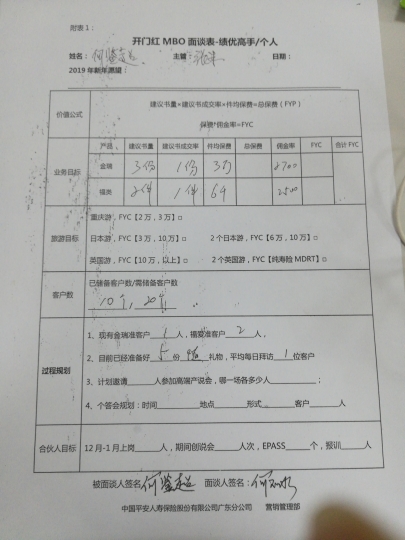 附表1：
开门红 MBO 面谈表-绩优高手/个人
姓名： 主管： 日期：
2019年新年愿望：
价值公式
建议书量*建议书成交率*件均保费=总保费（FYP）
保费*佣金率=FYC
业务目标
产品 建议书量 建议书成交率 件均保费 总保费 佣金率 FYC 合计FYC
金瑞 3份 1份 3万 2700
福英 2件 1件 64 2500
旅游目标
重庆游，FYC【2万，3万】□
日本游，FYC【3万，10万】□ 2个日本游，FYC【6万，10万】□
英国游，FYC【10万，以上】□ 2个英国游，FYC【纯寿险 MDRT】□
客户数
已储备客户数/需储备客户数
10个，20个
过程规划
1、现有金瑞准客户 1 人，福英准客户 2 人，
2、目前已经准备好 5 份 礼物，平均每日拜访 1 位客户
3、计划邀请 人参加高端产说会，哪一场各多少人 ；
4、个答会规划：时间 地点 形式 客户 人
合伙人目标
12月-1月上岗 人，期间创说会 人次，EPASS 个，预训 人
被面谈人签名： 面谈人签名：
中国平安人寿保险股份有限公司广东分公司 营销管理部